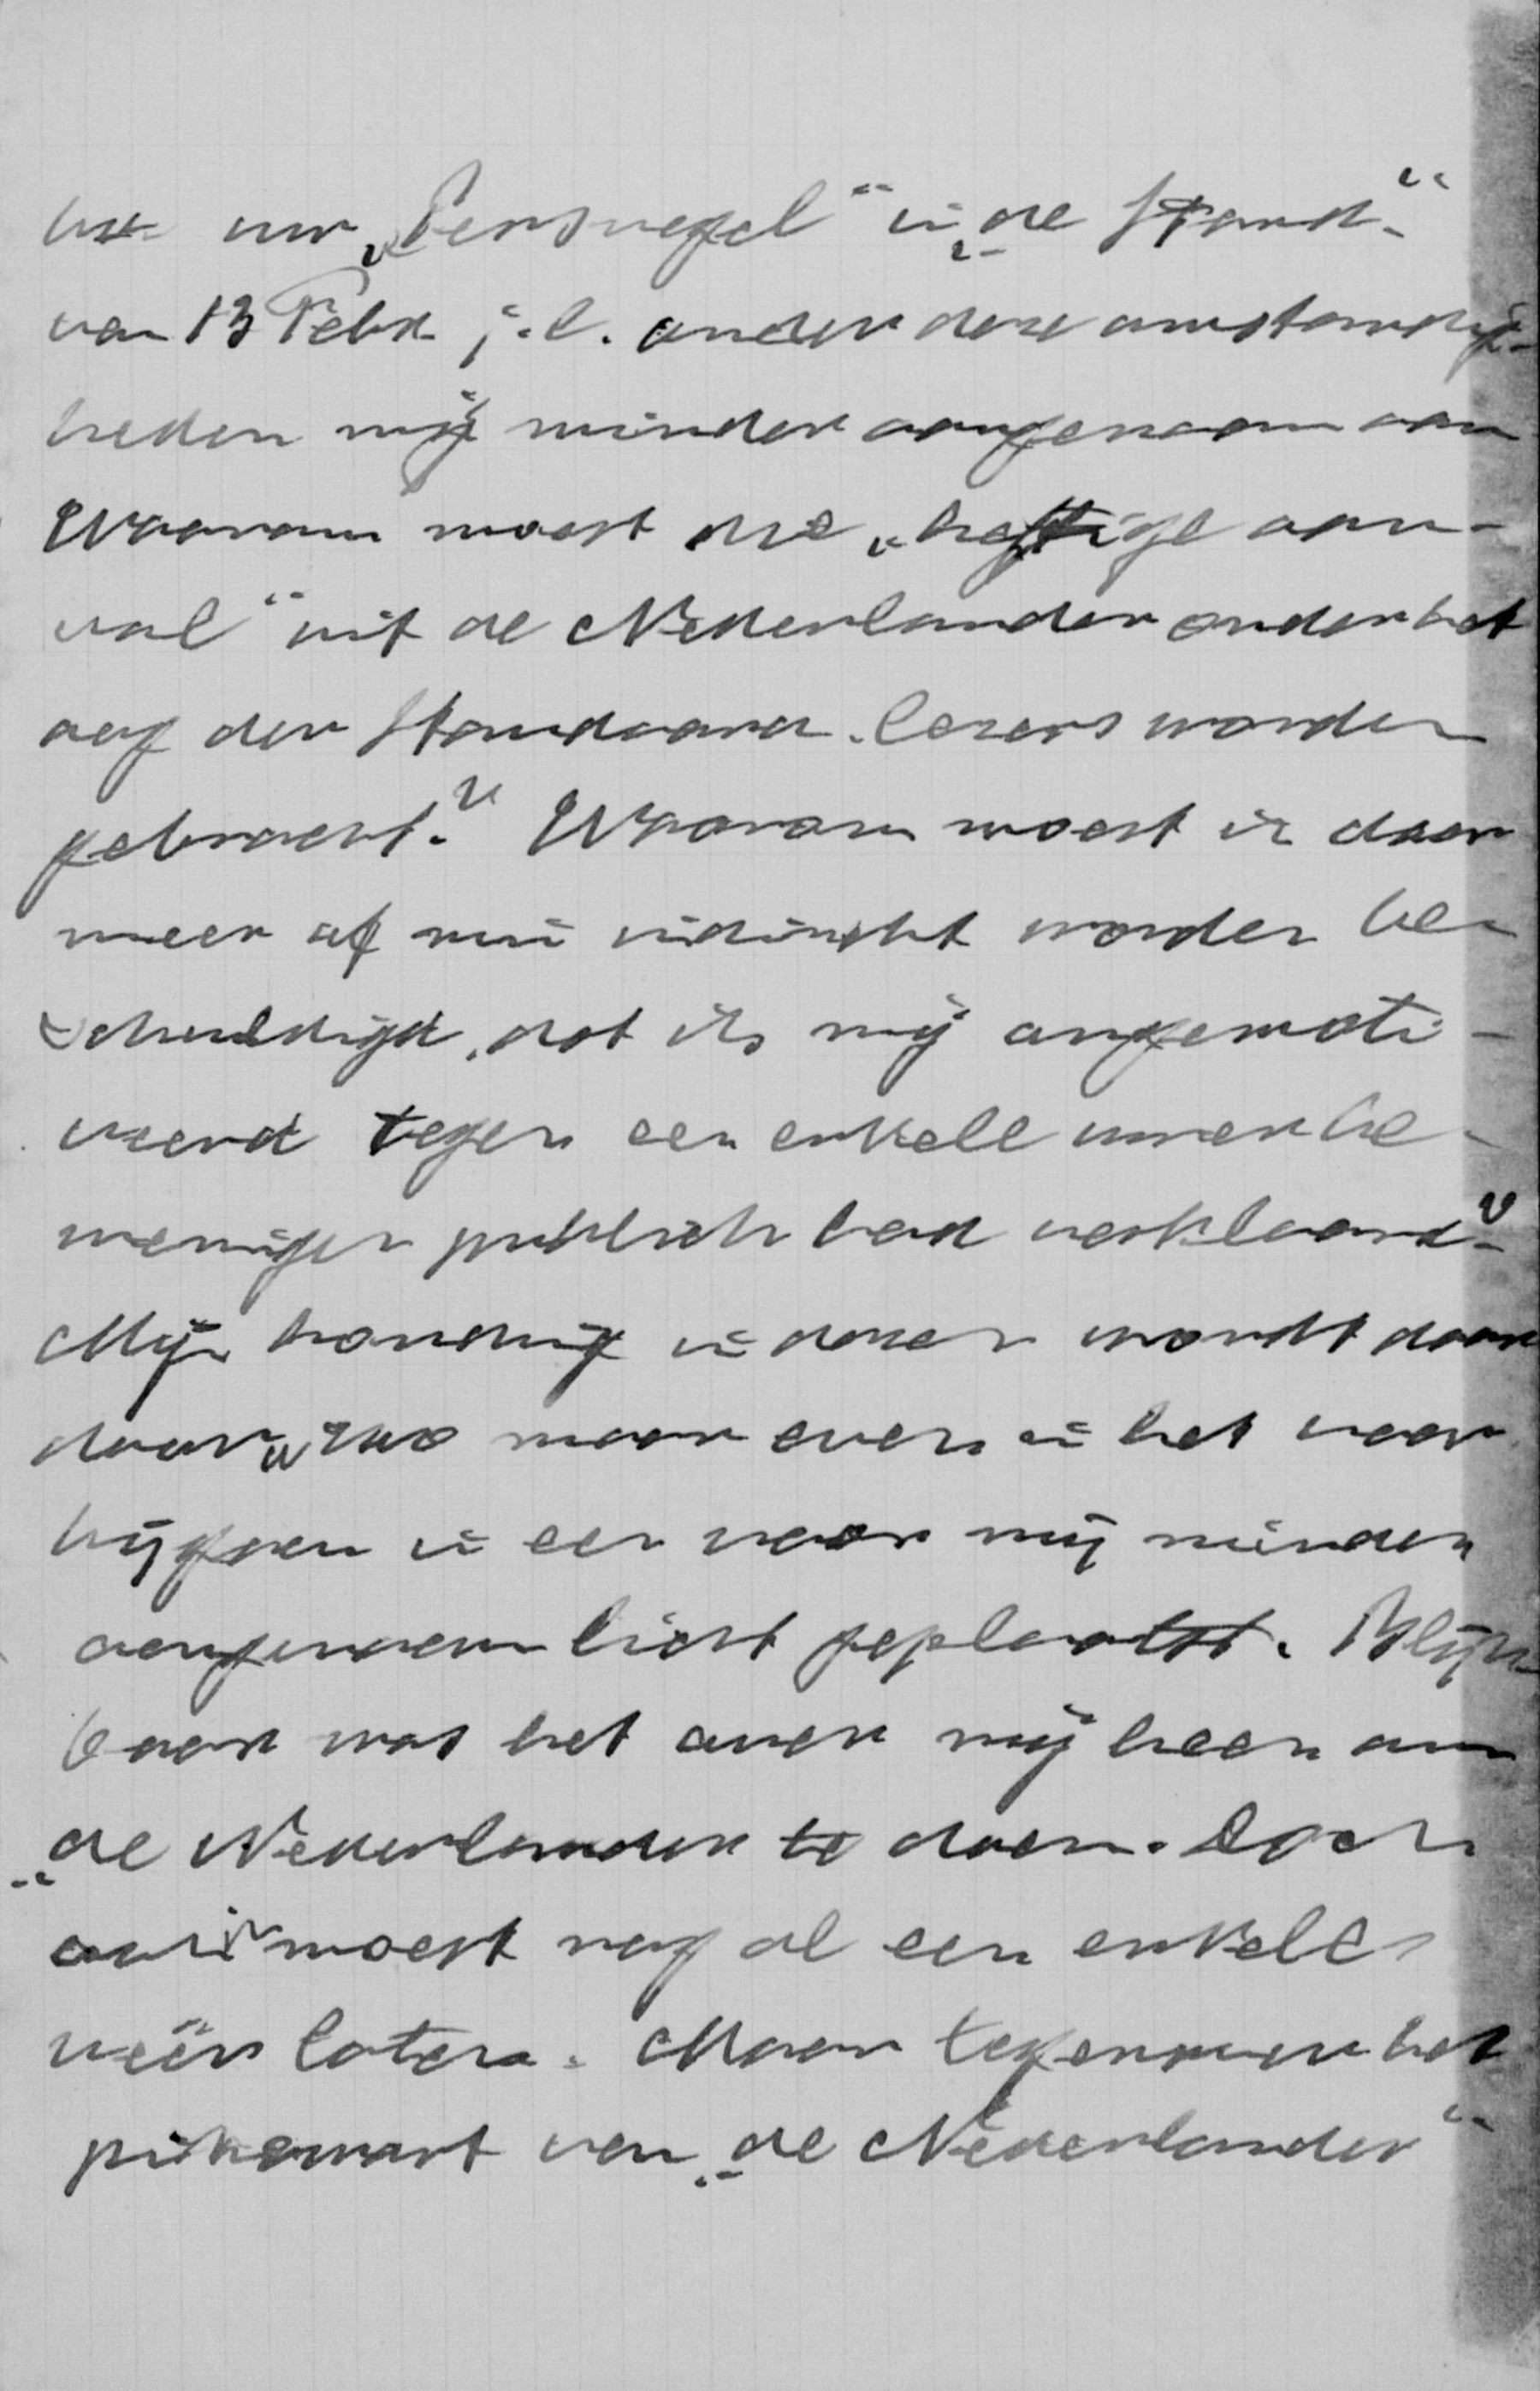 uw „Persvezel" in „de Stand."
van 13 Febr. j.l. onder deze omstandig-
heden mij minder aangenaam aan
Waarom moest die „heftige aan-
val" uit de Nederlander onder het
oog der Standaard-lezers worden
gebracht? Waarom moest ik daar
meer of min indirekt worden be-
schuldigd, dat ik mij ongemoti-
veerd tegen een enkele uwer be-
weringen publiek had verklaard?
Mijn houding in dezen wordt daar
door „zoo maar even in het voor
bijgaan in een voor mij minder
aangenaam licht geplaatst. Blijk
baar was het over mij heen om
„de Nederlander te doen. Doch
moest nog al een enkele
veer laten. Maar tegenover het
van „de Nederlander"